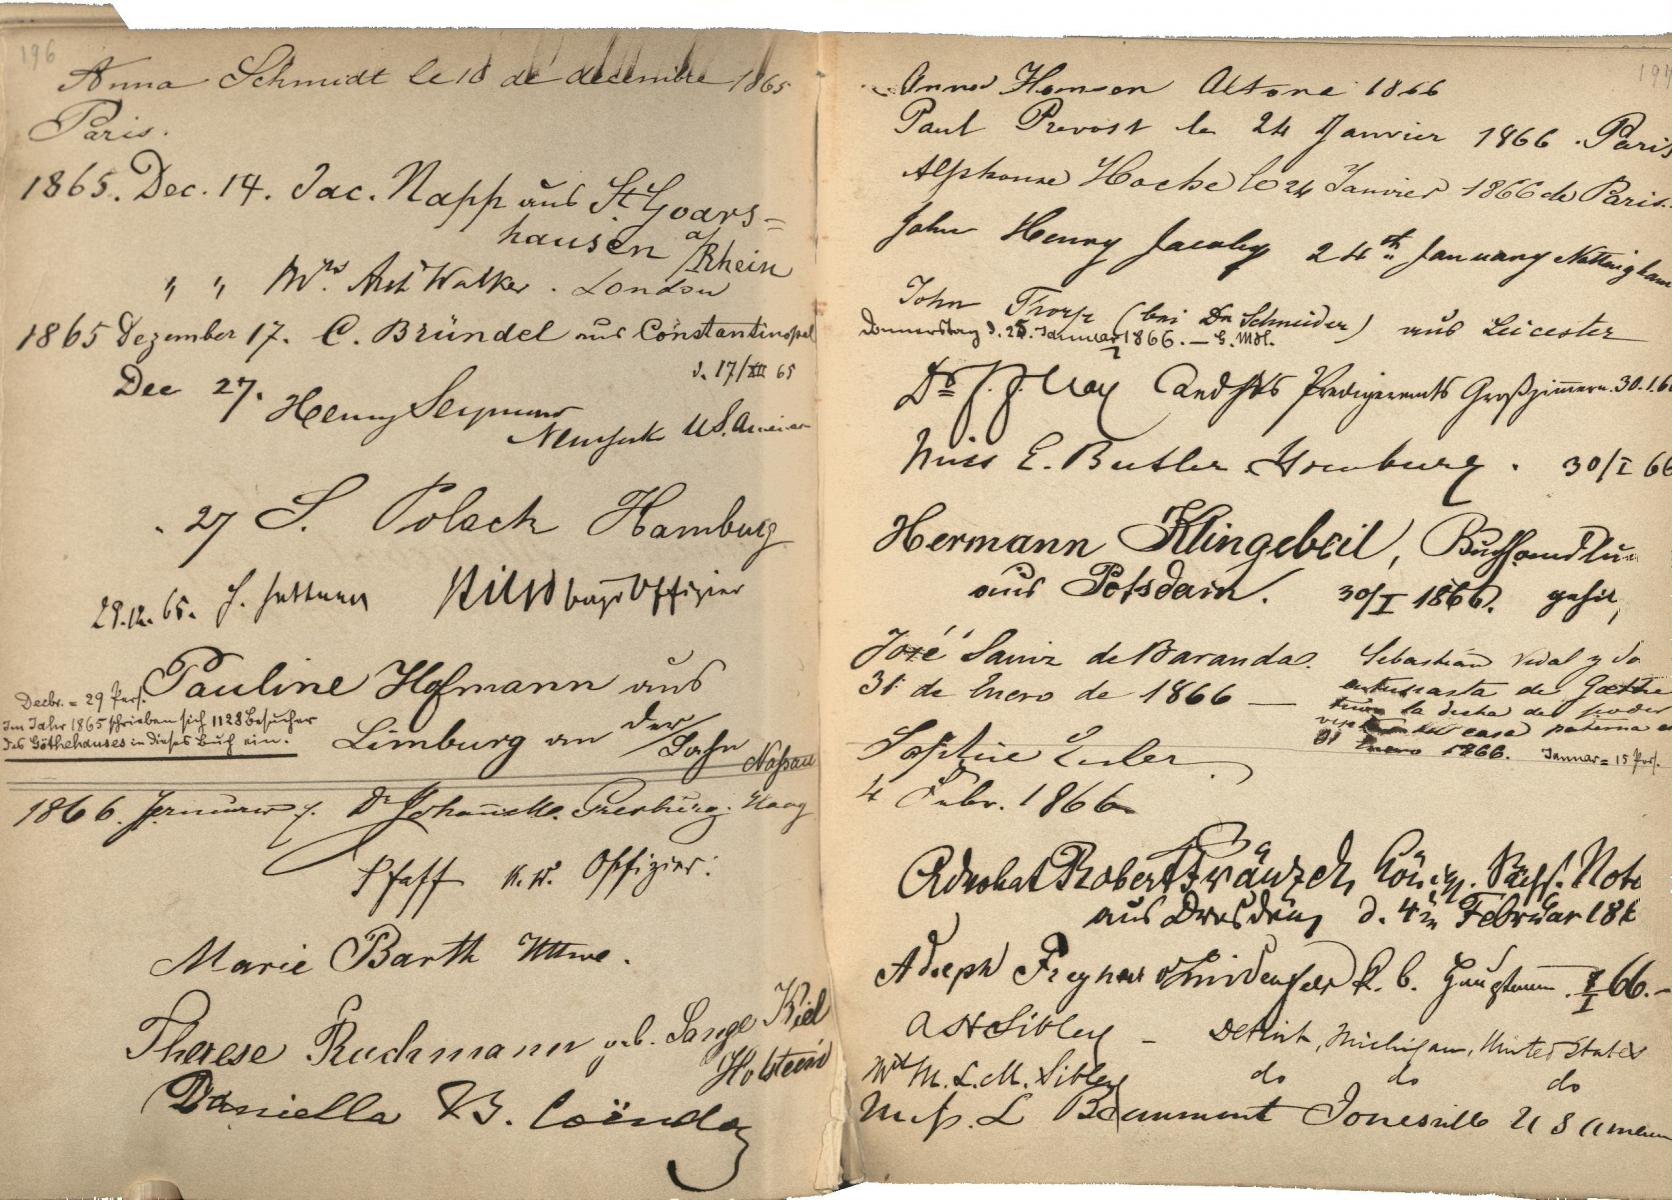 196
Anna Schmidt le 10 de decembre 1865
Paris.
1865. Dec. 14. Jac. Napp aus St Goars=
hausen a/Rhein
" " Mrs. Walker. London
1865 Dezember 17. C. Bründel aus Constantinopel
d. 17/XII 65
Dec 27. Henry Seymour
Newyork U.S. America
" 27 S. Polack Hamburg
29.12.65.
Pauline Hofmann aus
Limburg an der Lahn Nassau
Decbr. = 29 Pers.
Im Jahr 1865 schrieben sich 1128 Besucher
des Göthehauses in dieses Buch ein.
1866. Dr Haag
Pfaff k.k. Offizier.
Marie Barth Wttwe.
Therese Ruchmann geb. Lange Kiel
Holstein
Daniella
197
Anna Hansen Altona 1866
Paul Prevost le 24 Janvier 1866. Paris
Alphonse Hoche le 24 Janvier 1866 de Paris.
John Henry Jacoby 24th January Nottingham
John Thorp (bei Dr Schneider) aus Leicester
Donnerstag d. 25. Januar 1866. –
Dr J. J. May Cand. des Predigeramts Großzimmern. 30.1.66
Miss E. Butler Homburg. 30/I 66
Hermann Klingebeil, Buchhandlu
aus Potsdam. 30/I 1866.
José Sainz de Baranda.
31 de Enero de 1866 —
Sebastian Vidal y
entusiasta de Goethe
tuvo la dicha de poder
su casa paterna
31 Enero 1866.
Januar = 15 Pers.
Sophie Euler
4 Febr. 1866
Advokat Robert Fränzel, König. Sächs. Not
aus Dresden d. 4n Februar 18
Adolph Freyherr v Lindenfels k. b. Hauptmann. 66.–
A H Sibley – Detroit, Michigan, United States
M. L. M. Sibley do do do
Miss. L Beaumont Jonesville U S